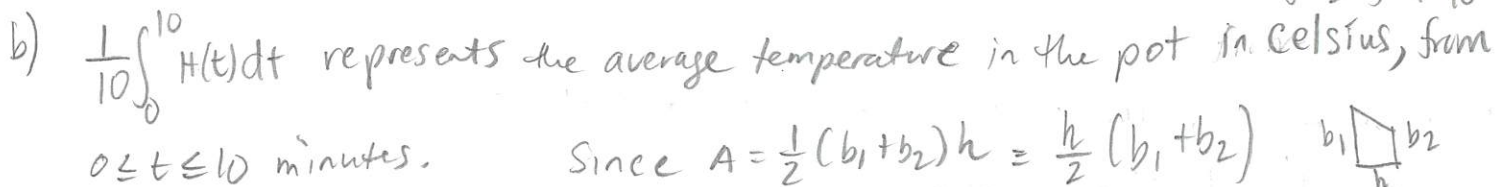 b) 1/10 ∫₀¹⁰ H(t)dt represents the average temperature in the pot in Celsius, from
0≤t≤10 minutes. Since A = 1/2 (b₁+b₂)h = h/2 (b₁+b₂) b₁ b₂ h